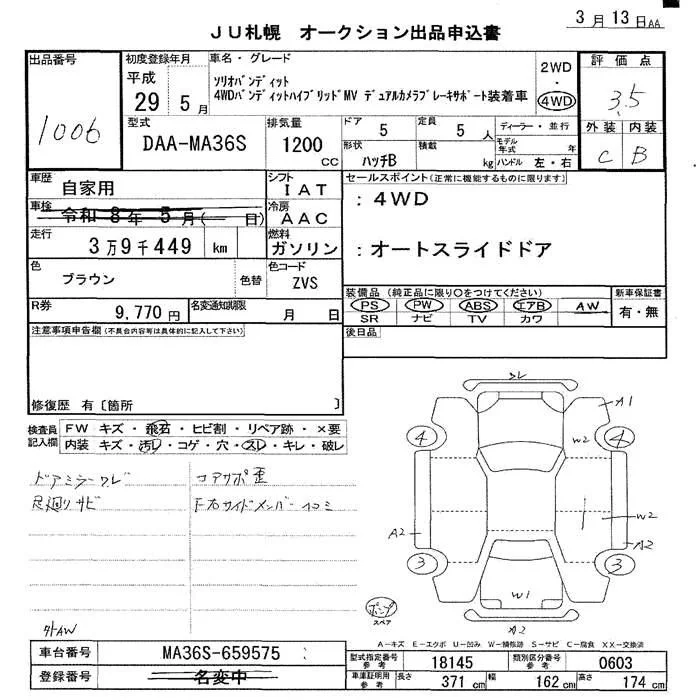 3月13日AA
JU札幌 オークション出品申込書
出品番号
1006
初度登録年月
平成
29年5月
車名・グレード
ソリオバンディット
4WDバンディットハイブリッドMV デュアルカメラブレーキサポート装着車
2WD
・
4WD
評価点
3.5
外装 内装
C B
型式
DAA-MA36S
排気量
1200
CC
ドア 5
定員 5人
ディーラー・並行
モデル年式 年
形状 ハッチB
積載 kg
ハンドル 左・右
車歴
自家用
シフト
IAT
セールスポイント(正常に機能するものに限ります)
: 4WD
: オートスライドドア
車検
令和8年5月( 日)
冷房
AAC
走行
3万9千449 km
燃料
ガソリン
色
ブラウン
色替
色コード
ZVS
装備品 (純正品に限り〇をつけてください)
PS PW ABS エアB AW
SR ナビ TV カワ
新車保証書
有・無
R券
9,770円
名変通知期限
月 日
後日品
注意事項申告欄(不具合内容等は具体的に記入して下さい)
修復歴 有〔箇所 〕
検査員記入欄
FW キズ・飛石・ヒビ割・リペア跡・×要
内装 キズ・汚レ・コゲ・穴・スレ・キレ・破レ
ドアミラーワレ
足廻りサビ
コアサポ歪
F右サイドメンバー凹ミ
外AW
ソレ
A1
4
4
W2
A2
W2
A2
3
3
W1
A2
ポンプ
スペア
A-キズ E-エクボ U-凹み W-補修跡 S-サビ C-腐食 XX-交換済
車台番号
MA36S-659575
登録番号
名変中
型式指定番号
参考
18145
類別区分番号
参考
0603
車庫証明用
参考
長さ 371 cm
幅 162 cm
高さ 174 cm